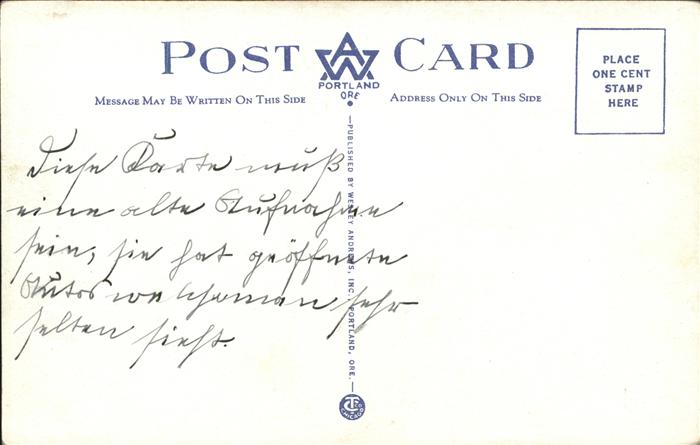 POST CARD
AW
PORTLAND
ORE
MESSAGE MAY BE WRITTEN ON THIS SIDE
ADDRESS ONLY ON THIS SIDE
PLACE
ONE CENT
STAMP
HERE
Diese Karte muß
eine alte Aufnahme
sein, sie hat geöffnete
Autos welche man sehr
selten sieht.
—PUBLISHED BY WESLEY ANDREWS, INC., PORTLAND, ORE.—
CHICAGO